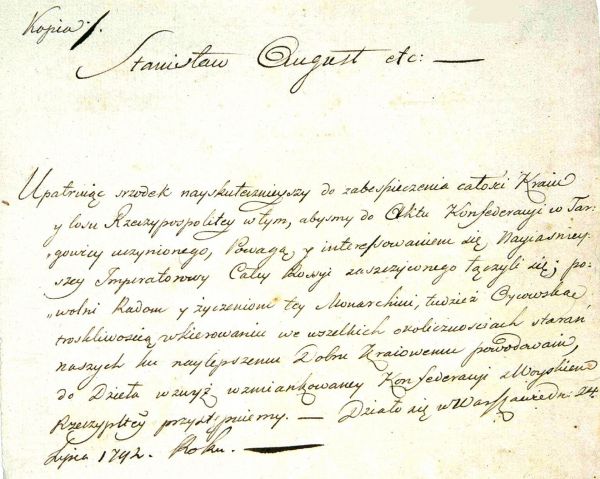 Kopia ·/.
Stanisław August etc: —
Upatruiąc srzodek nayskutecznieyszy do zabespieczenia całości Kraiu
y losu Rzeczypospolitey w tym, abysmy do Aktu Konfederacyi w Tar-
„gowicy uczynionego, Powagą y interessowaniem się Nayiasniey-
szey Imperatorowy Całey Rossyi zaszczyconego łączyli się; po-
„wolni Radom y życzeniom tey Monarchini, tudzież Oycowską
troskliwoscią w kierowaniu we wszelkich okolicznosciach staran
naszych ku naylepszemu Dobru Kraiowemu powodowani,
do Dzieła wzwyż wzmiankowaney Konfederacyi z Woyskiem
Rzeczyplltey przystępuiemy. — Działo się w Warszawie dn: 24.
Lipca 1792. Roku. —